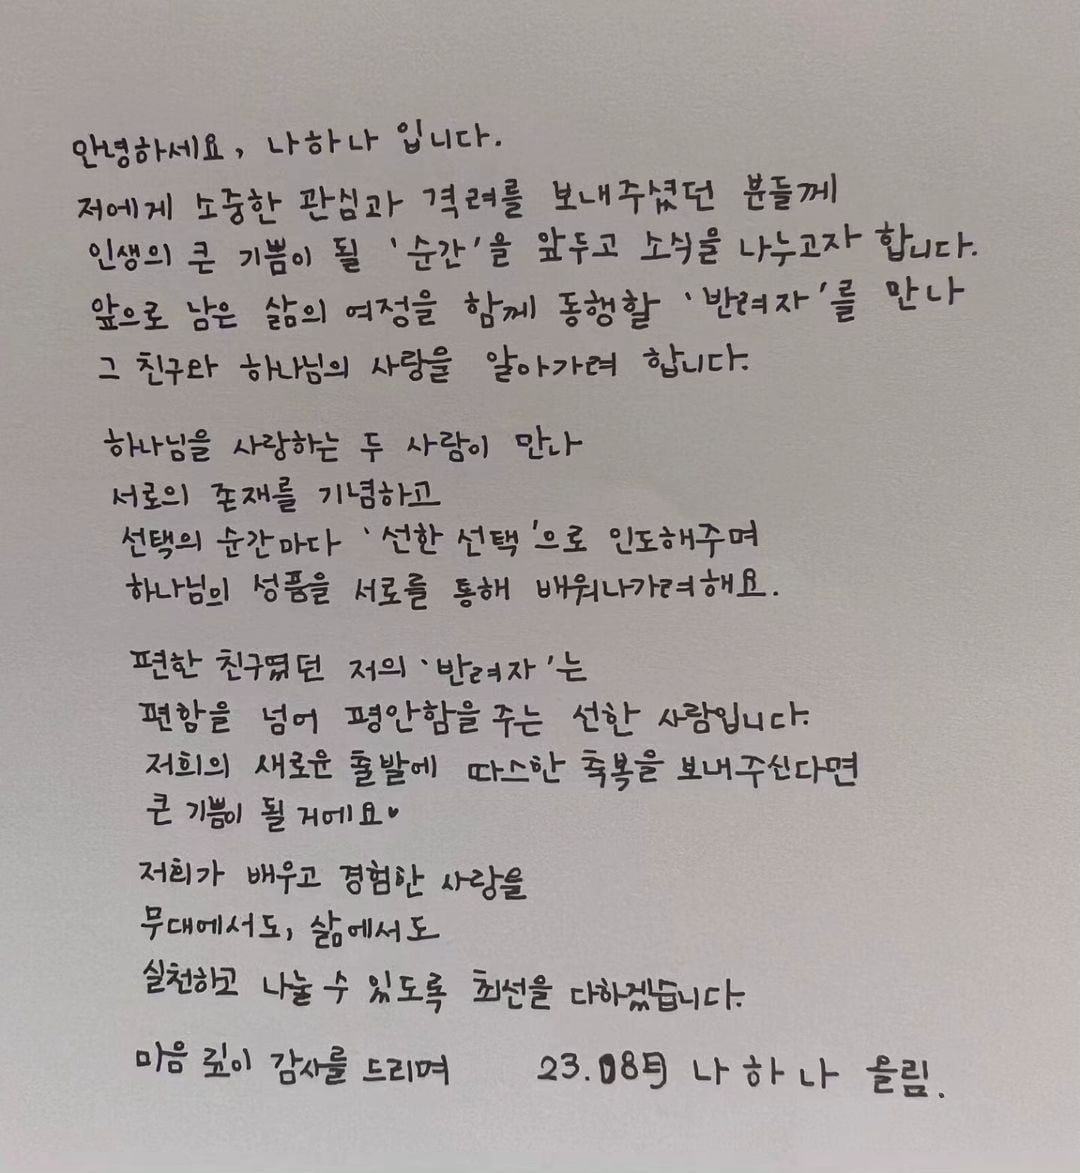 안녕하세요, 나하나 입니다.
저에게 소중한 관심과 격려를 보내주셨던 분들께
인생의 큰 기쁨이 될 '순간'을 앞두고 소식을 나누고자 합니다.
앞으로 남은 삶의 여정을 함께 동행할 '반려자'를 만나
그 친구와 하나님의 사랑을 알아가려 합니다.
하나님을 사랑하는 두 사람이 만나
서로의 존재를 기념하고
선택의 순간마다 '선한 선택'으로 인도해주며
하나님의 성품을 서로를 통해 배워나가려해요.
편한 친구였던 저의 '반려자'는
편함을 넘어 평안함을 주는 선한 사람입니다.
저희의 새로운 출발에 따스한 축복을 보내주신다면
큰 기쁨이 될 거에요♥
저희가 배우고 경험한 사랑을
무대에서도, 삶에서도
실천하고 나눌 수 있도록 최선을 다하겠습니다.
마음 깊이 감사를 드리며 23.08월 나하나 올림.